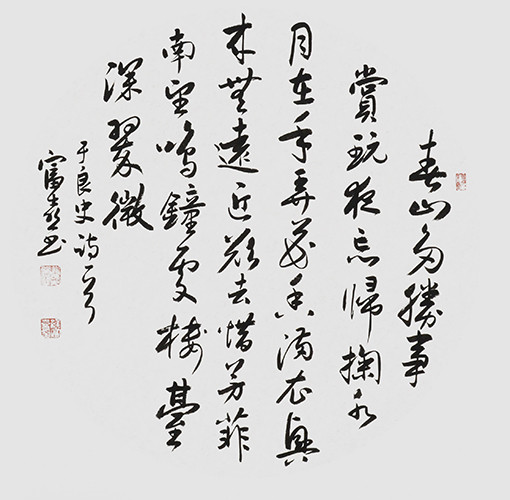 春山多勝事
賞玩夜忘歸掬水
月在手弄花香滿衣興
来無遠近欲去惜芳菲
南望鳴鐘處楼臺
深翠微
于良史詩一首
富书